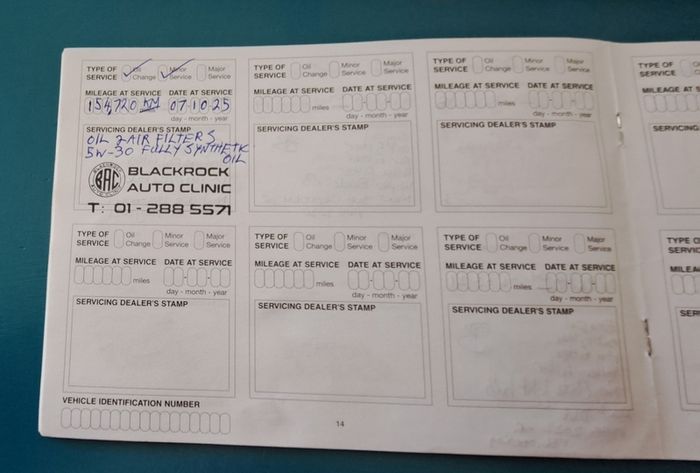 TYPE OF SERVICE Oil Change Minor Service Major Service
MILEAGE AT SERVICE DATE AT SERVICE
154,720 KM 07.10.25
day - month - year
SERVICING DEALER'S STAMP
OIL 2 AIR FILTERS
5W-30 FULLY SYNTHETIC
OIL
BLACKROCK
BAC
AUTO CLINIC
BLACKROCK
AUTO CLINIC
T: 01 - 288 5571
TYPE OF SERVICE Oil Change Minor Service Major Service
MILEAGE AT SERVICE DATE AT SERVICE
miles
day - month - year
SERVICING DEALER'S STAMP
TYPE OF SERVICE Oil Change Minor Service Major Service
MILEAGE AT SERVICE DATE AT SERVICE
miles
day - month - year
SERVICING DEALER'S STAMP
TYPE OF SERVICE Oil
MILEAGE AT S
SERVICING
TYPE OF SERVICE Oil Change Minor Service Major Service
MILEAGE AT SERVICE DATE AT SERVICE
miles
day - month - year
SERVICING DEALER'S STAMP
TYPE OF SERVICE Oil Change Minor Service Major Service
MILEAGE AT SERVICE DATE AT SERVICE
miles
day - month - year
SERVICING DEALER'S STAMP
TYPE OF SERVICE Oil Change Minor Service Major Service
MILEAGE AT SERVICE DATE AT SERVICE
miles
day - month - year
SERVICING DEALER'S STAMP
TYPE O
SERVIC
MILEA
SER
VEHICLE IDENTIFICATION NUMBER
14